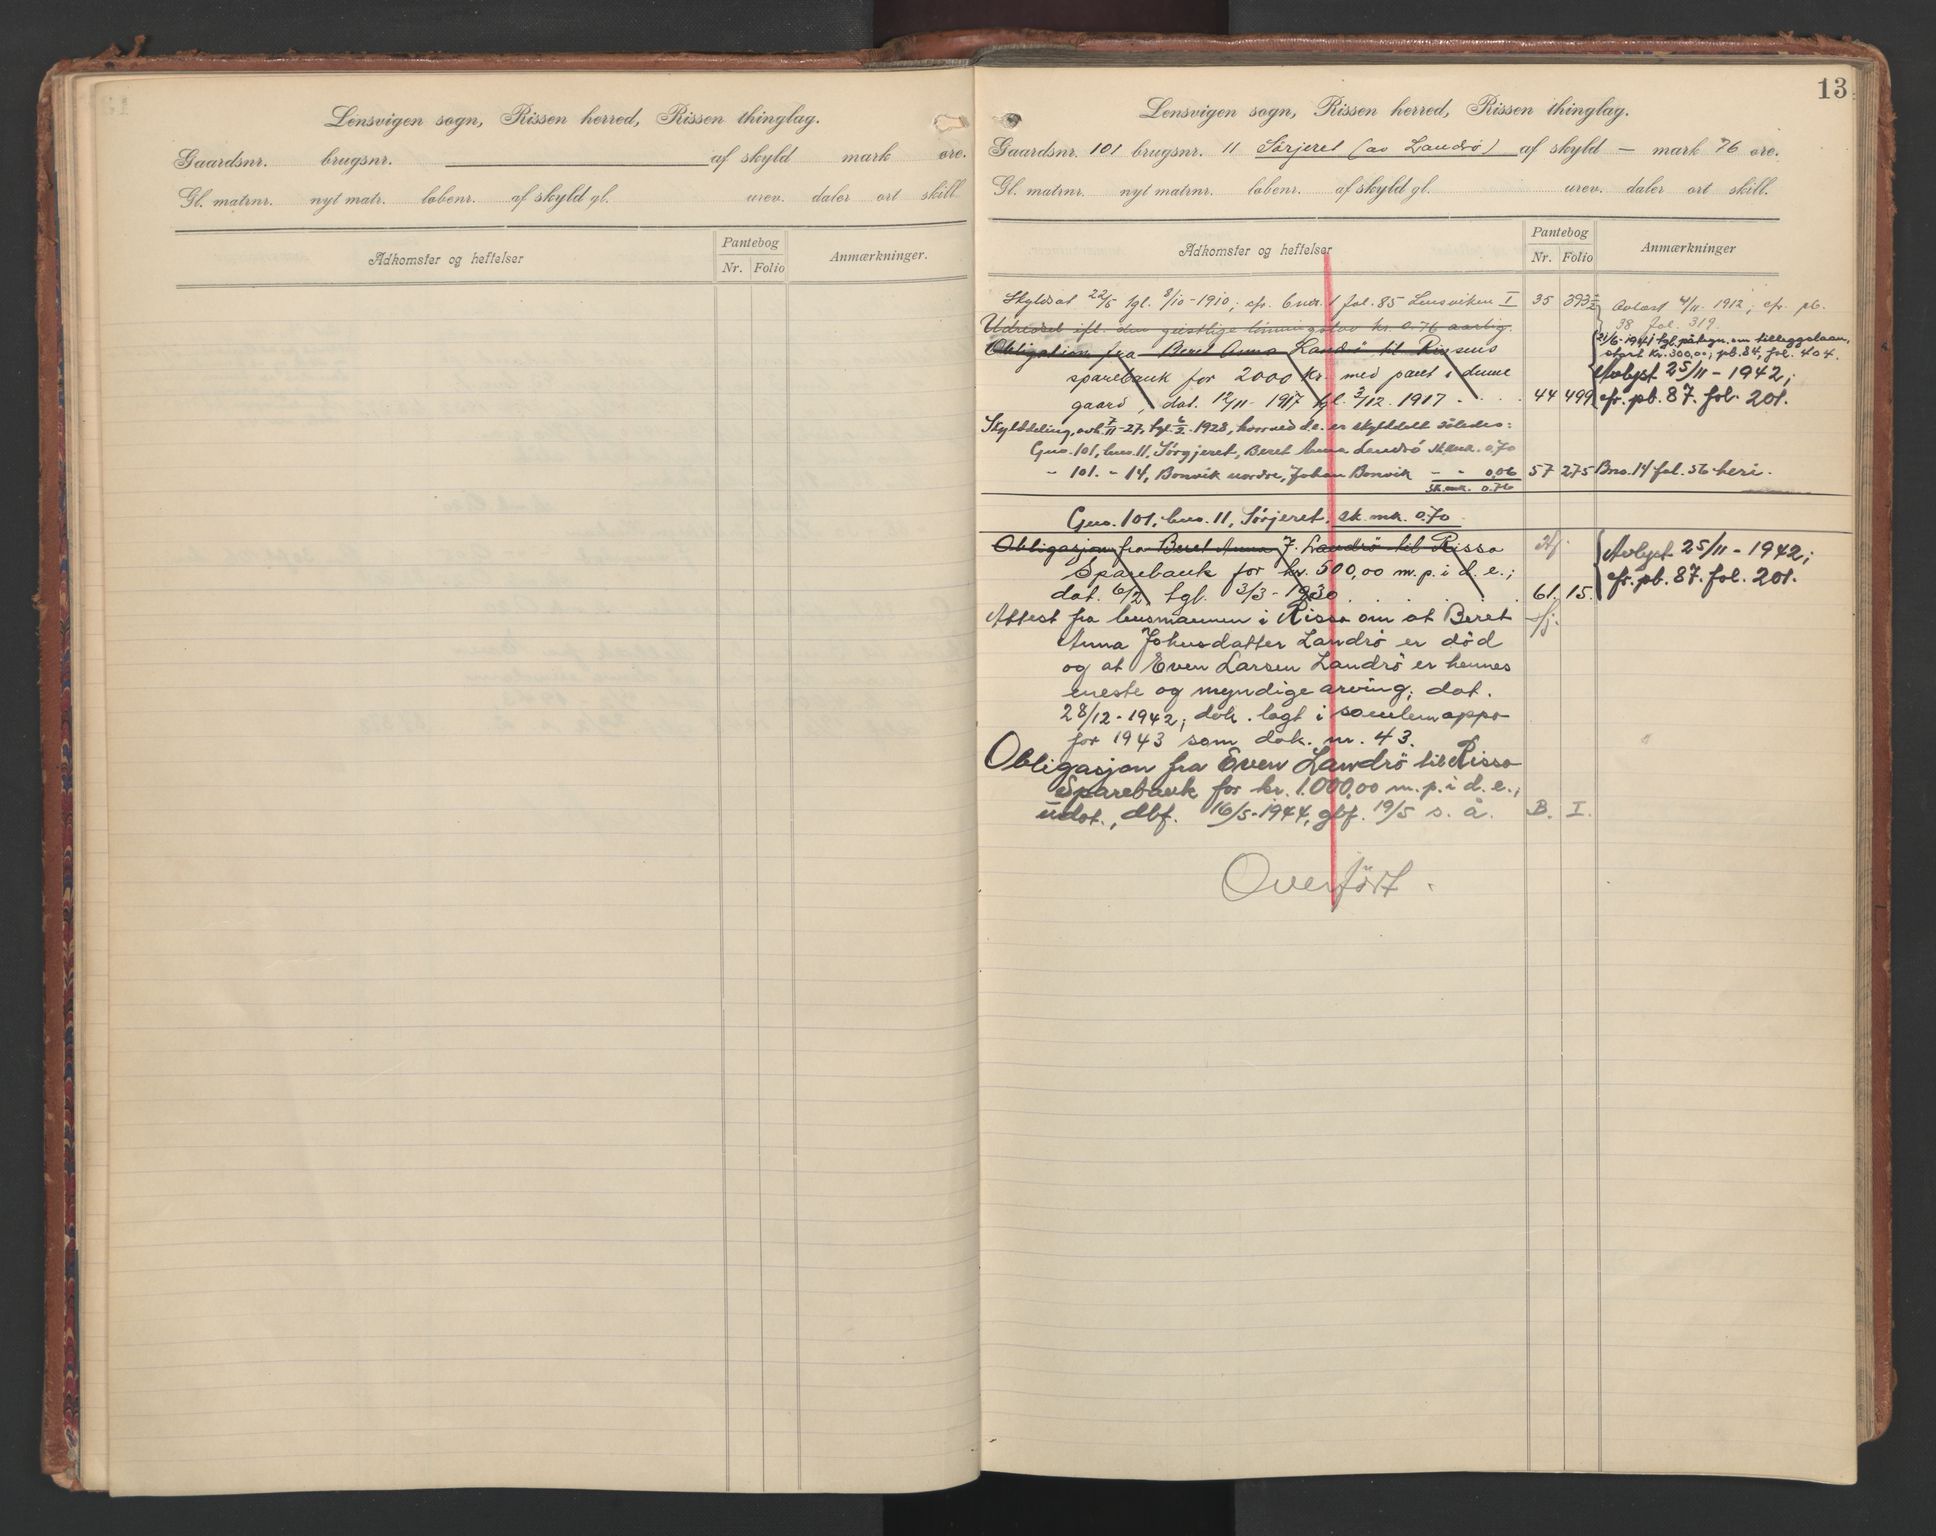 Lensvigen sogn, Rissen herred, Rissen thinglag.
Gaardsnr. brugsnr. af skyld mark øre.
Gl. matrnr. nyt matr. løbenr. af skyld gl. urev. daler ort skill.
Adkomster og heftelser
Pantebog
Nr. Folio
Anmærkninger.
13
Lensvigen sogn, Rissen herred, Rissen thinglag.
Gaardsnr. 101 brugsnr. 11 Sørjeret (av Landrö) af skyld — mark 76 øre.
Gl. matrnr. nyt matrnr. løbenr. af skyld gl. urev. daler ort skill.
Adkomster og heftelser
Pantebog
Nr. Folio
Anmærkninger
Skyldsat 22/5 tgl. 8/10-1910; cfr. bnr. 1 fol. 85 Lensviken I 35 393
Avløst 4/11-1912; cfr. pb.
38 fol. 319.
Udredsel ifl. den geistlige lønningslov kr. 0.76 aarlig.
Obligation fra Beret Anna Landrö til Rissens
21/6-1941 tgl. påtegn. om tilleggslaan,
stort kr. 300,00; pb. 84, fol. 404.
sparebank for 2000 kr. med pant i denne
Avlyst 25/11-1942;
gaard, dat. 12/11-1917 tgl. 3/12.1917 44 499 cfr. pb. 87. fol. 201.
Skylddeling, avh. 7/11-27, tgl. 6/2.1928, hvorved d.e. er skylddelt således:
Gno. 101, bno. 11, Sørgjeret, Beret Anna Landrö sk.mk. 0,70
" 101. " 14, Bonvik nordre, Johan Bonvik " " 0,06 57 275 Bno. 14 fol. 56 heri.
Sk. mk. 0.76
Gno. 101, bno. 11, Sørjeret, sk. mk. 0.70
Obligasjon fra Beret Anna J. Landrö til Rissa
Avlyst 25/11-1942;
Sparebank for kr. 500,00 m.p.i d.e.;
cfr. pb. 87. fol. 201.
dat. 6/2 tgl. 3/3-1930 61. 15.
Attest fra lensmannen i Rissa om at Beret
Anna Johnsdatter Landrö er död
og at Even Larsen Landrö er hennes
eneste og myndige arving; dat.
28/12-1942; dok. lagt i
for 1943 som dok. nr. 43.
Obligasjon fra Even Landrö til Rissa
Sparebank for kr. 1.000,00 m.p.i d.e.;
udat., dbf. 16/5-1944, gbf. 19/5 s. å. B. I.
Overført.